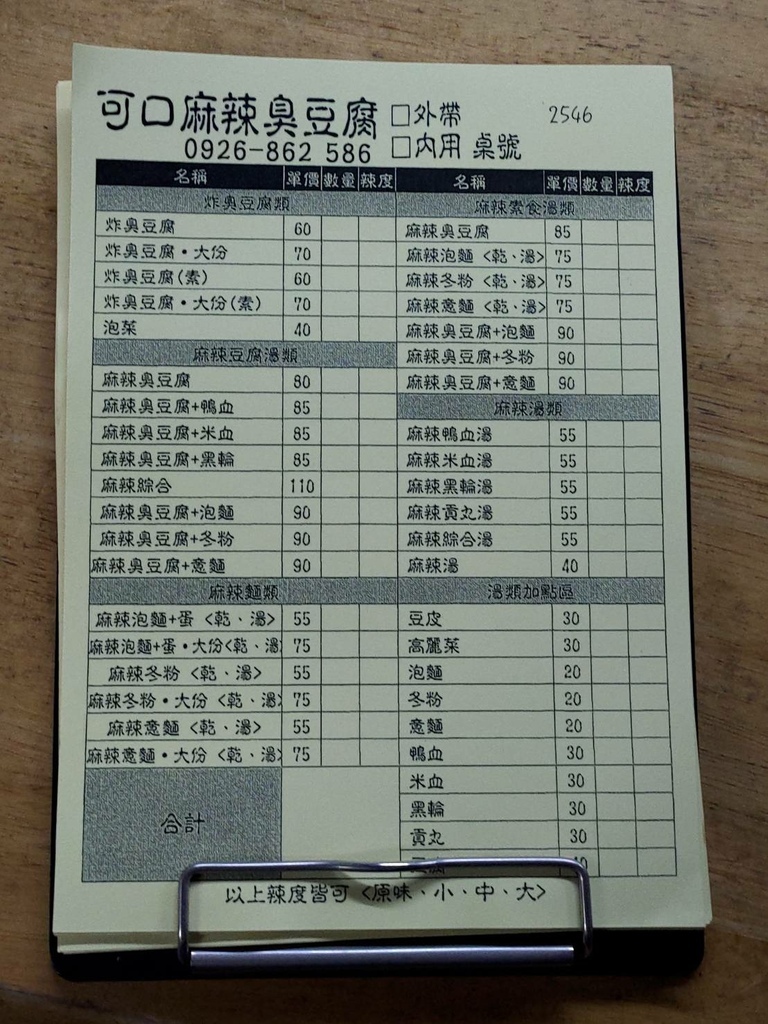 可口麻辣臭豆腐 □外帶 2546
0926-862 586 □內用 桌號
名稱 單價 數量 辣度
炸臭豆腐類
炸臭豆腐 60
炸臭豆腐・大份 70
炸臭豆腐(素) 60
炸臭豆腐・大份(素) 70
泡菜 40
麻辣豆腐湯類
麻辣臭豆腐 80
麻辣臭豆腐+鴨血 85
麻辣臭豆腐+米血 85
麻辣臭豆腐+黑輪 85
麻辣綜合 110
麻辣臭豆腐+泡麵 90
麻辣臭豆腐+冬粉 90
麻辣臭豆腐+意麵 90
麻辣麵類
麻辣泡麵+蛋 <乾、湯> 55
麻辣泡麵+蛋・大份<乾、湯> 75
麻辣冬粉 <乾、湯> 55
麻辣冬粉・大份 <乾、湯> 75
麻辣意麵 <乾、湯> 55
麻辣意麵・大份 <乾、湯> 75
合計
名稱 單價 數量 辣度
麻辣素食湯類
麻辣臭豆腐 85
麻辣泡麵 <乾、湯> 75
麻辣冬粉 <乾、湯> 75
麻辣意麵 <乾、湯> 75
麻辣臭豆腐+泡麵 90
麻辣臭豆腐+冬粉 90
麻辣臭豆腐+意麵 90
麻辣湯類
麻辣鴨血湯 55
麻辣米血湯 55
麻辣黑輪湯 55
麻辣貢丸湯 55
麻辣綜合湯 55
麻辣湯 40
湯類加點區
豆皮 30
高麗菜 30
泡麵 20
冬粉 20
意麵 20
鴨血 30
米血 30
黑輪 30
貢丸 30
以上辣度皆可 <原味、小、中、大>